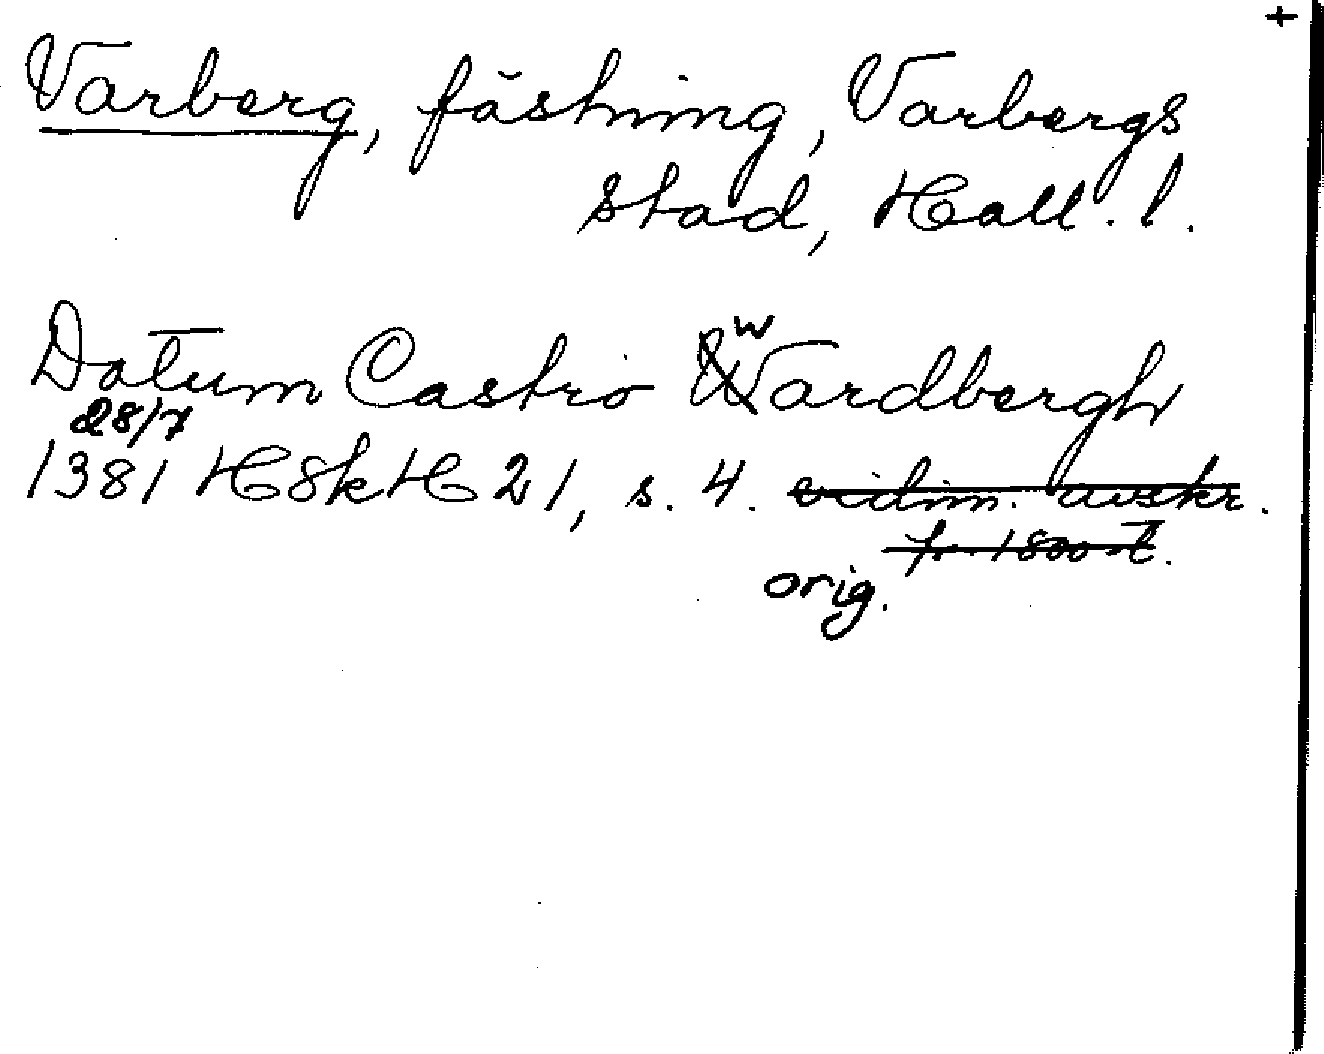 +
Varberg, fästning, Varbergs
stad, Hall. l.
Datum Castro wardbergh
28/7
1381 HSkH 21, s. 4. vidim. avskr.
fr. 1800-t.
orig.